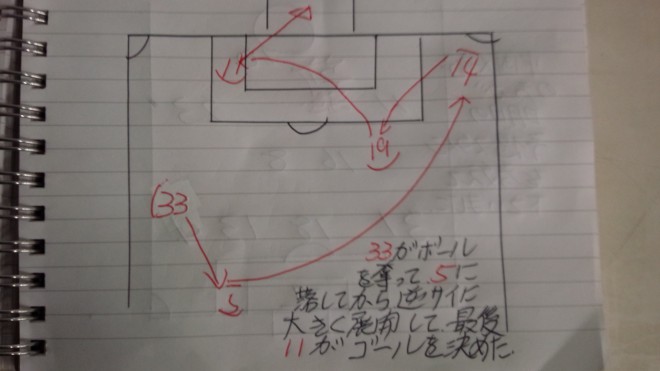 11
14
19
33
5
33がボール
を奪って5に
落してから逆サイに
大きく展開して、最後
11がゴールを決めた.